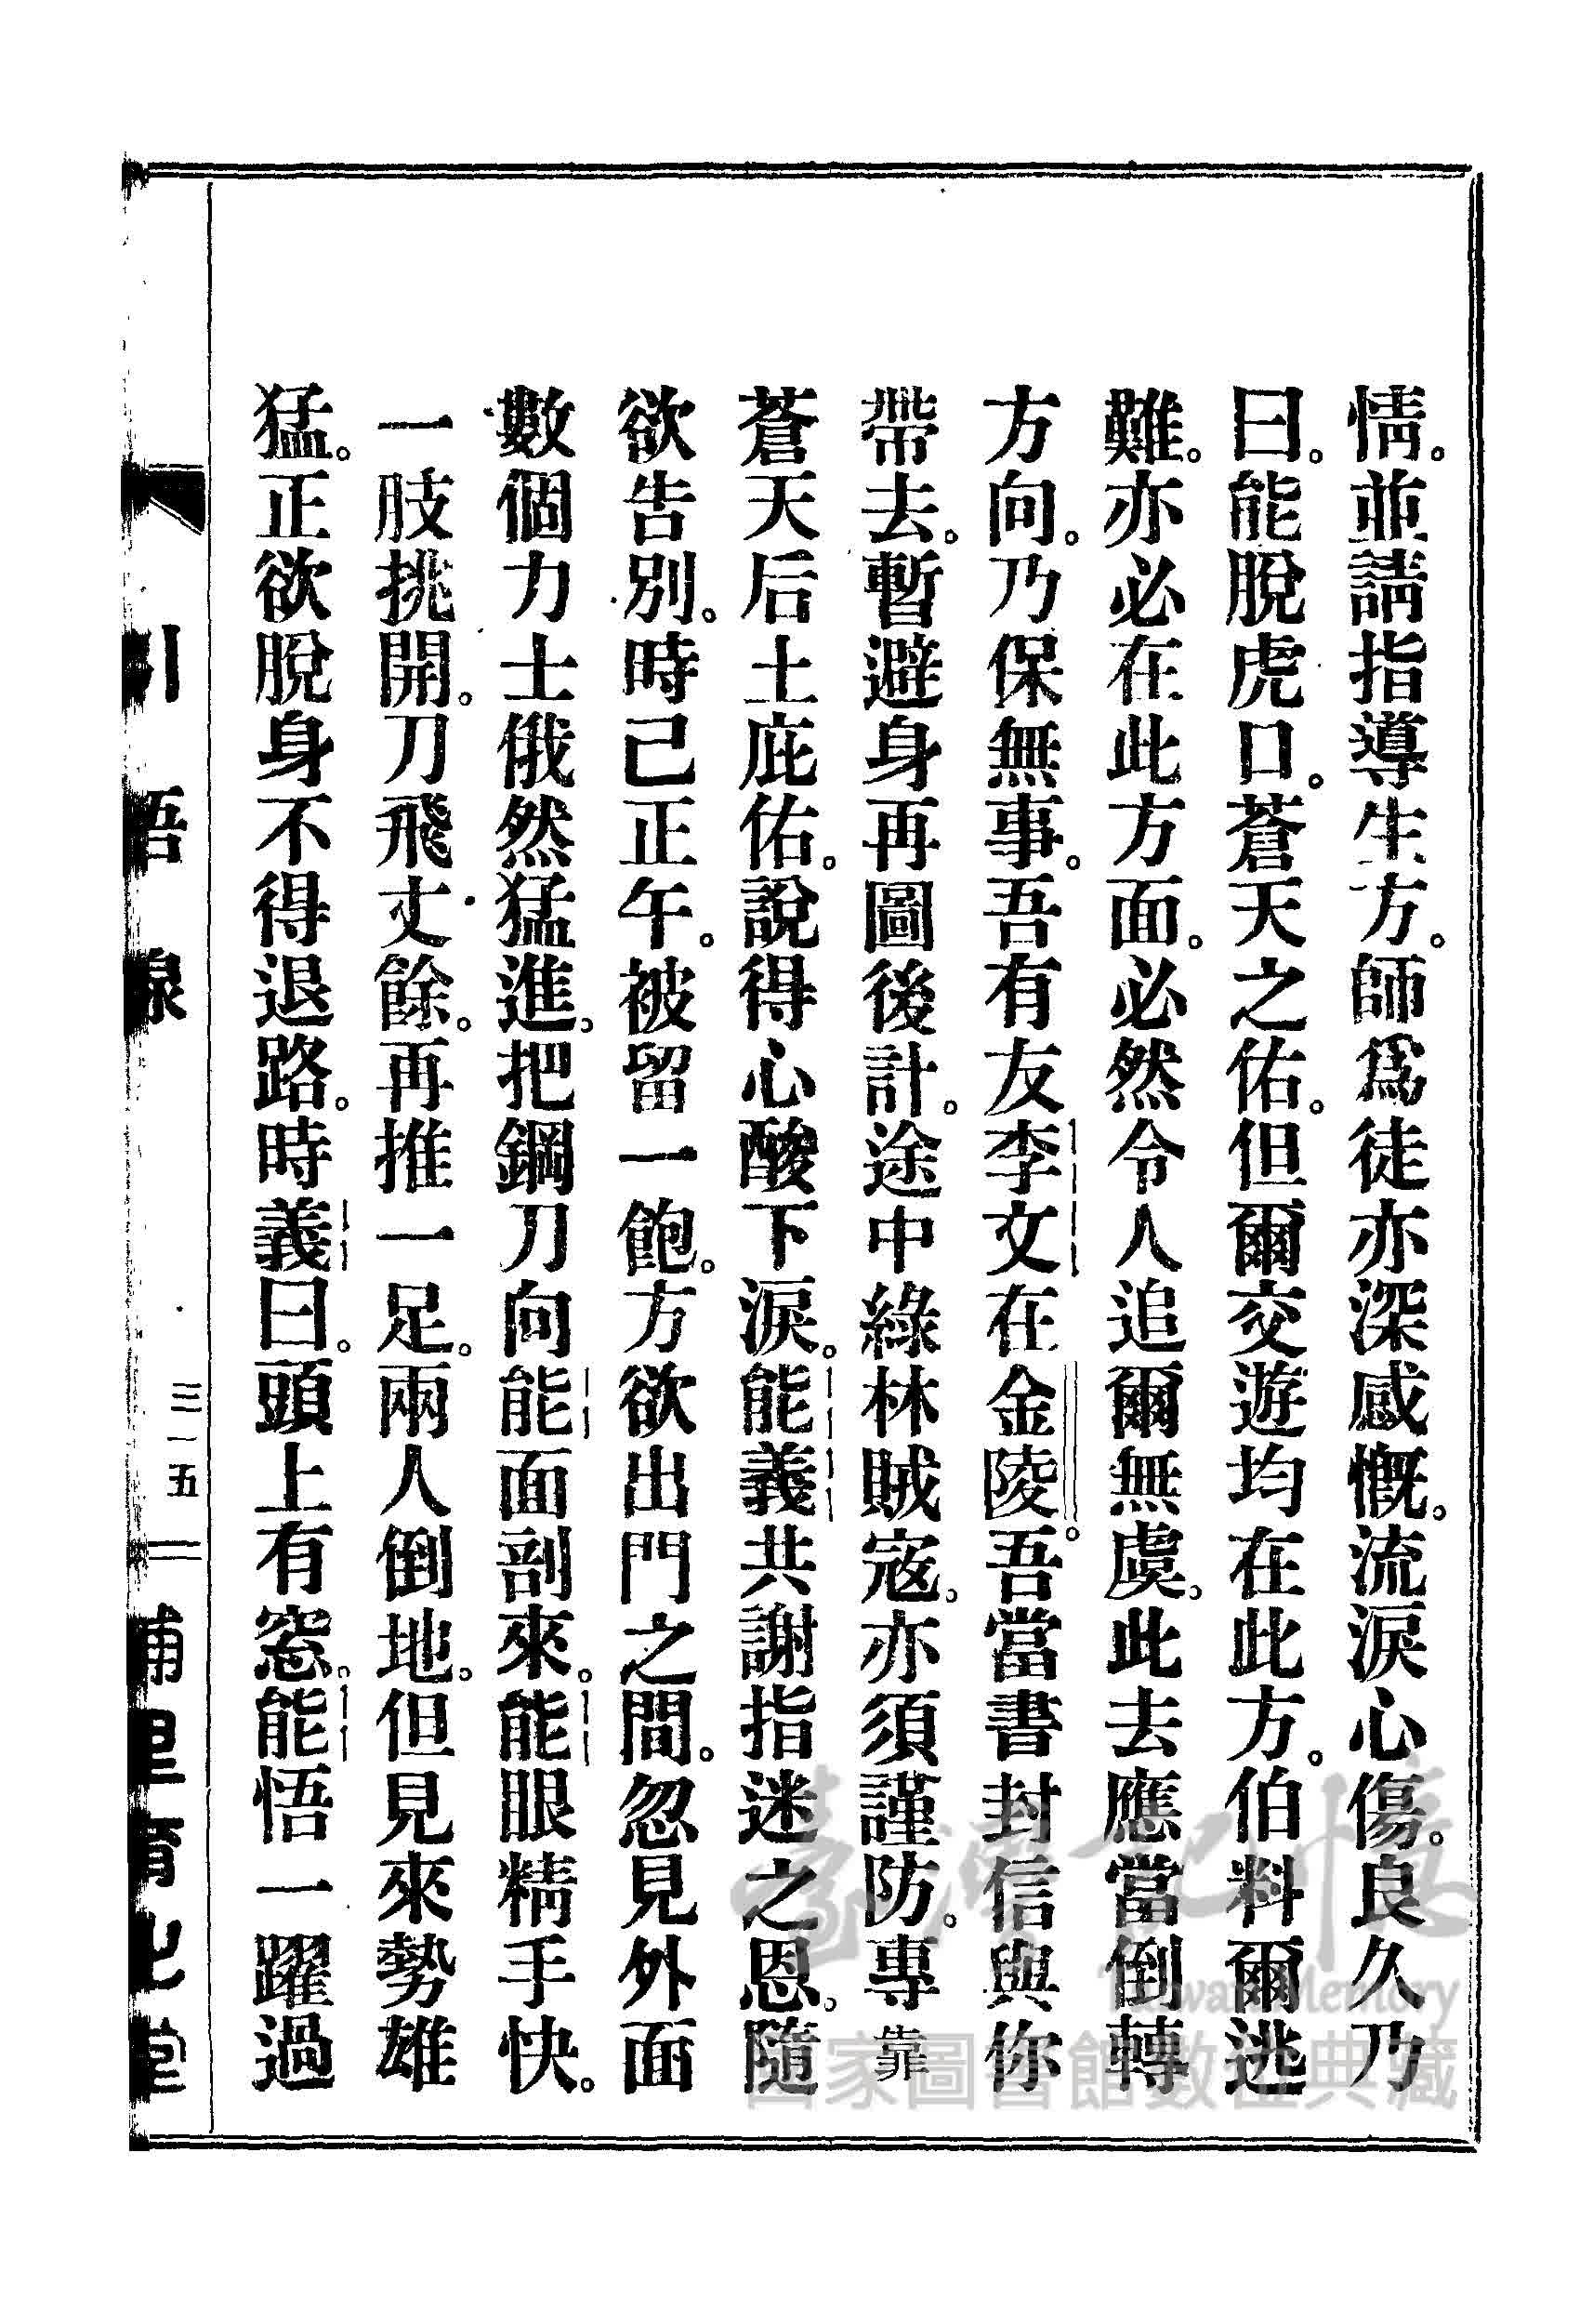 情。並請指導生方。師爲徒亦深感慨。流淚心傷。良久乃
曰。能脫虎口。蒼天之佑。但爾交遊均在此方。伯料爾逃
難。亦必在此方面。必然令人追爾無虞。此去應當倒轉
方向。乃保無事。吾有友李文在金陵。吾當書封信與你
帶去。暫避身再圖後計。途中綠林賊寇。亦須謹防。專靠
蒼天后土庇佑。說得心酸下淚。能義共謝指迷之恩。隨
欲告別。時己正午。被留一飽。方欲出門之間。忽見外面
數個力士俄然猛進。把鋼刀向能面剖來。能眼精手快。
一肢挑開。刀飛丈餘。再推一足。兩人倒地。但見來勢雄
猛。正欲脫身不得退路。時義曰。頭上有窓。能悟一躍過
引悟線
三一五
埔里育化堂
臺灣記憶
Taiwan Memory
國家圖書館數位典藏